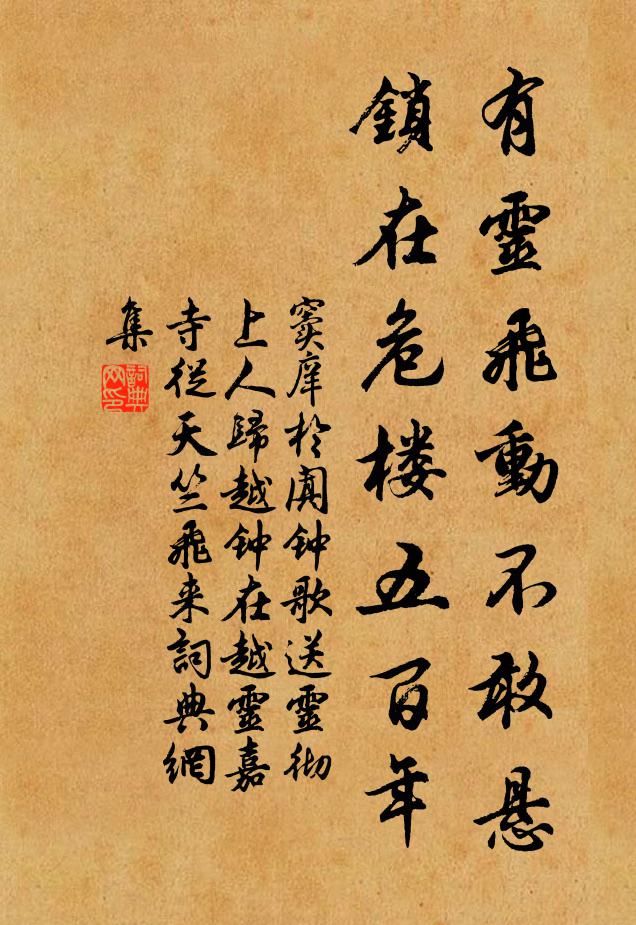 有靈飛動不敢悬
鎖在危楼五百年
窦庠於阗钟歌送靈彻
上人歸越钟在越靈嘉
寺從天竺飛来詞典網
集
詞典
网印